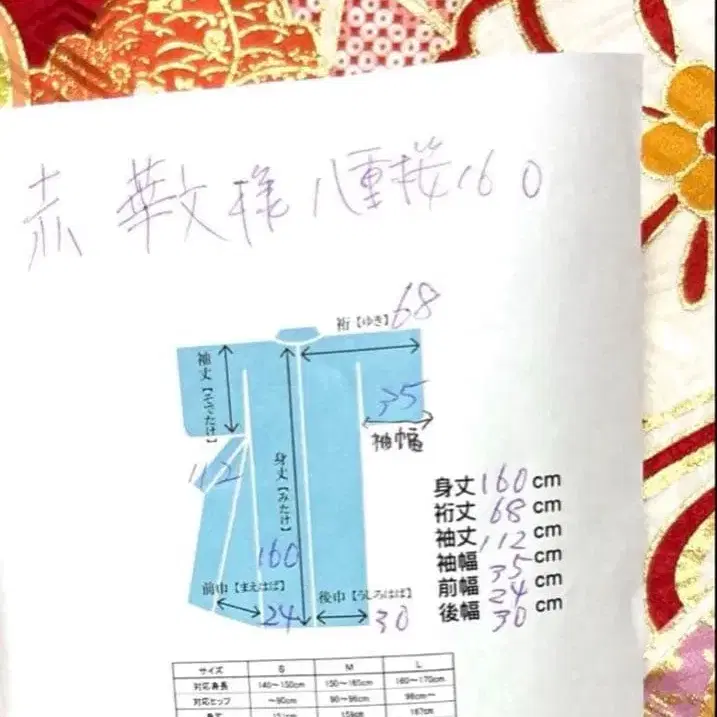 赤 華文様 八重桜160
裄【ゆき】68
袖丈【そでたけ】
112
35
袖幅
身丈【みたけ】
160
前巾【まえはば】
24
後巾【うしろはば】
30
身丈 160 cm
裄丈 68 cm
袖丈 112 cm
袖幅 35 cm
前幅 24 cm
後幅 30 cm
サイズ S M L
対応身長 140～150cm 150～165cm 160～170cm
対応ヒップ ～90cm 90～96cm 98cm～
身丈 151cm 159cm 167cm